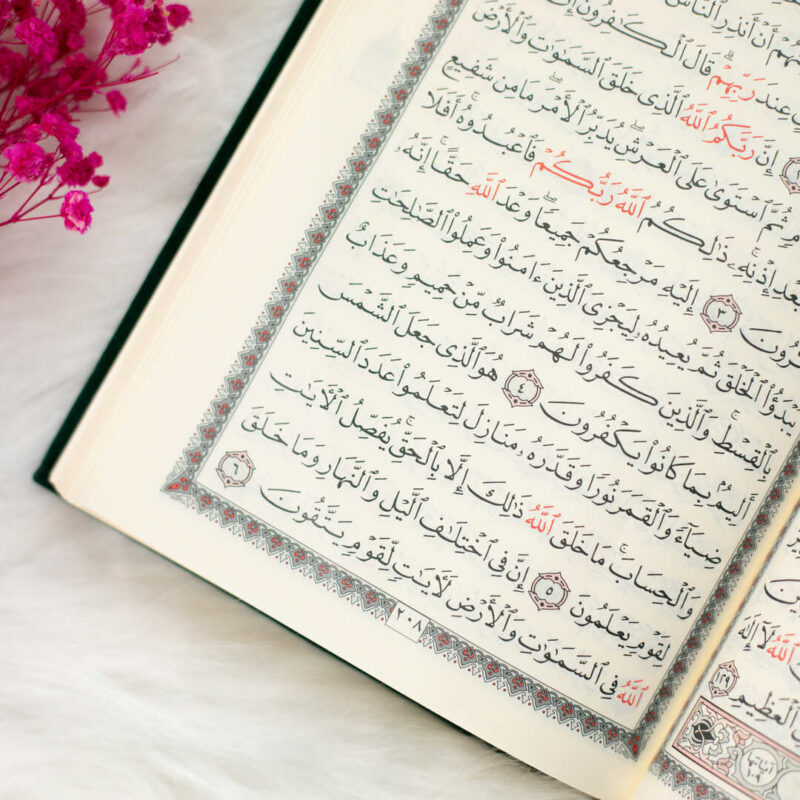 أَنْ أَنذِرِ ٱلنَّاسَ
عِندَ رَبِّهِمْ ۗ قَالَ ٱلْكَـٰفِرُونَ إِنَّ
إِنَّ رَبَّكُمُ ٱللَّهُ ٱلَّذِى خَلَقَ ٱلسَّمَـٰوَٰتِ وَٱلْأَرْضَ
ثُمَّ ٱسْتَوَىٰ عَلَى ٱلْعَرْشِ ۖ يُدَبِّرُ ٱلْأَمْرَ ۖ مَا مِن شَفِيعٍ
بَعْدِ إِذْنِهِۦ ۚ ذَٰلِكُمُ ٱللَّهُ رَبُّكُمْ فَٱعْبُدُوهُ ۚ أَفَلَا
٣ إِلَيْهِ مَرْجِعُكُمْ جَمِيعًا ۖ وَعْدَ ٱللَّهِ حَقًّا ۚ إِنَّهُۥ
يَبْدَؤُا۟ ٱلْخَلْقَ ثُمَّ يُعِيدُهُۥ لِيَجْزِىَ ٱلَّذِينَ ءَامَنُوا۟ وَعَمِلُوا۟ ٱلصَّـٰلِحَـٰتِ
بِٱلْقِسْطِ ۚ وَٱلَّذِينَ كَفَرُوا۟ لَهُمْ شَرَابٌ مِّنْ حَمِيمٍ وَعَذَابٌ
أَلِيمٌۢ بِمَا كَانُوا۟ يَكْفُرُونَ ٤ هُوَ ٱلَّذِى جَعَلَ ٱلشَّمْسَ
ضِيَآءً وَٱلْقَمَرَ نُورًا وَقَدَّرَهُۥ مَنَازِلَ لِتَعْلَمُوا۟ عَدَدَ ٱلسِّنِينَ
وَٱلْحِسَابَ ۚ مَا خَلَقَ ٱللَّهُ ذَٰلِكَ إِلَّا بِٱلْحَقِّ ۚ يُفَصِّلُ ٱلْـَٔايَـٰتِ
لِقَوْمٍ يَعْلَمُونَ ٥ إِنَّ فِى ٱخْتِلَـٰفِ ٱلَّيْلِ وَٱلنَّهَارِ وَمَا خَلَقَ
ٱللَّهُ فِى ٱلسَّمَـٰوَٰتِ وَٱلْأَرْضِ لَـَٔايَـٰتٍ لِّقَوْمٍ يَتَّقُونَ ٦
٢٠٨
ٱللَّهُ لَآ إِلَـٰهَ
ٱلْعَظِيمِ ١٢٩
آياتها
١٠٩